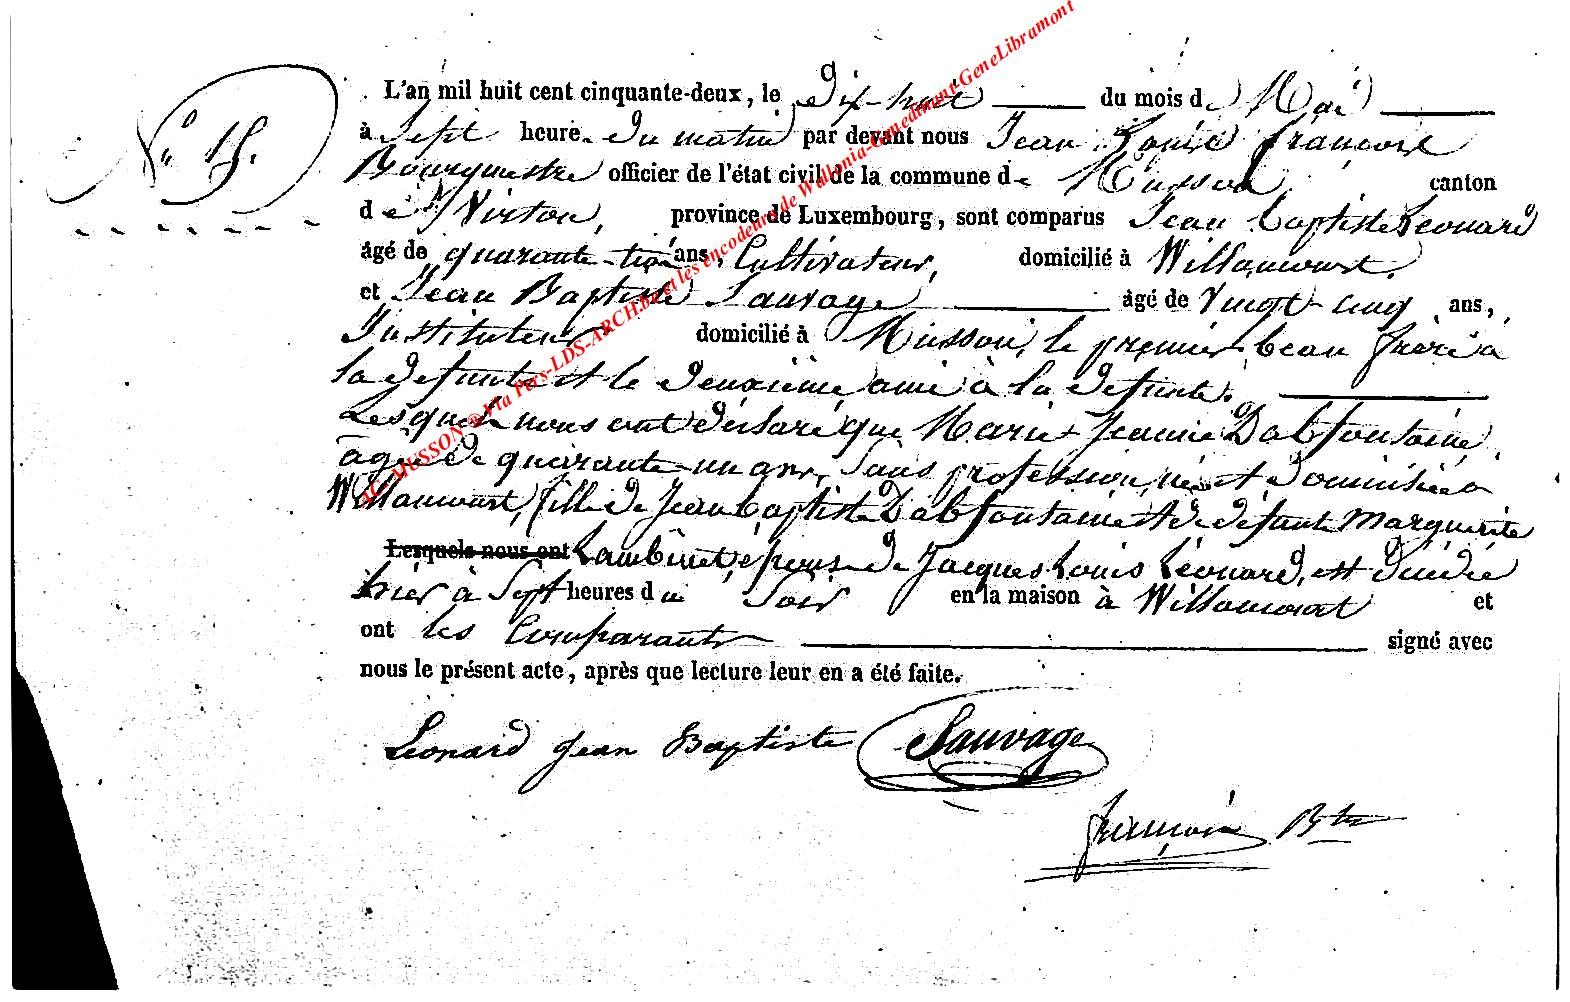 N° 15.
L'an mil huit cent cinquante-deux, le Dix-huit du mois de Mai
à Sept heure. du matin par devant nous Jean Louis françois
Bourgmestre officier de l'état civil de la commune de Musson canton
de Virton, province de Luxembourg, sont comparus Jean baptiste Léonard
âgé de quarante-trois ans, Cultivateur, domicilié à Willancourt.
et Jean Baptiste Sauvage âgé de Vingt-cinq ans,
Instituteur domicilié à Musson, le premier beau frère à
la defunte et le deuxième ami à la defunte.
Lesquels nous ont déclaré que Marie-Jeanne Dabfontaine,
agée de quarante-un ans, Sans profession, née et domiciliée à
Willancourt, fille de Jean baptiste Dabfontaine et de defunte Marguerite
Lesquels nous ont Lambinet, épouse de Jacques Louis Léonard, est décédée
hier à Sept heures du Soir en la maison à Willancourt et
ont les Comparants signé avec
nous le présent acte, après que lecture leur en a été faite.
Léonard Jean Baptiste Sauvage
françois Btre
AC MUSSON @ Via Pers-LDS-ARCH.be et les encodeurs de Wallonia-Genedinant-GeneLibramont